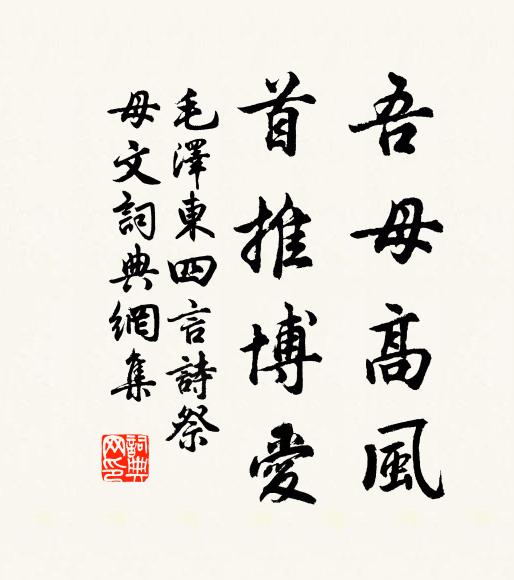 吾母高風
首推博愛
毛澤東四言詩祭
母文詞典網集
詞典
网印